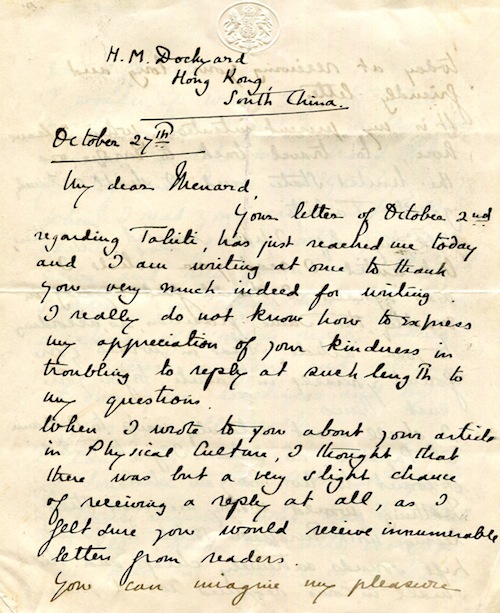 H. M. Dockyard
Hong Kong,
South China.
October 27th
My dear Menard,
Your letter of October 2nd
regarding Tahiti, has just reached me today
and I am writing at once to thank
you very much indeed for writing.
I really do not know how to express
my appreciation of your kindness in
troubling to reply at such length to
my questions.
When I wrote to you about your article
in Physical Culture, I thought that
there was but a very slight chance
of receiving a reply at all, as I
felt sure you would receive innumerable
letters from readers.
You can imagine my pleasure